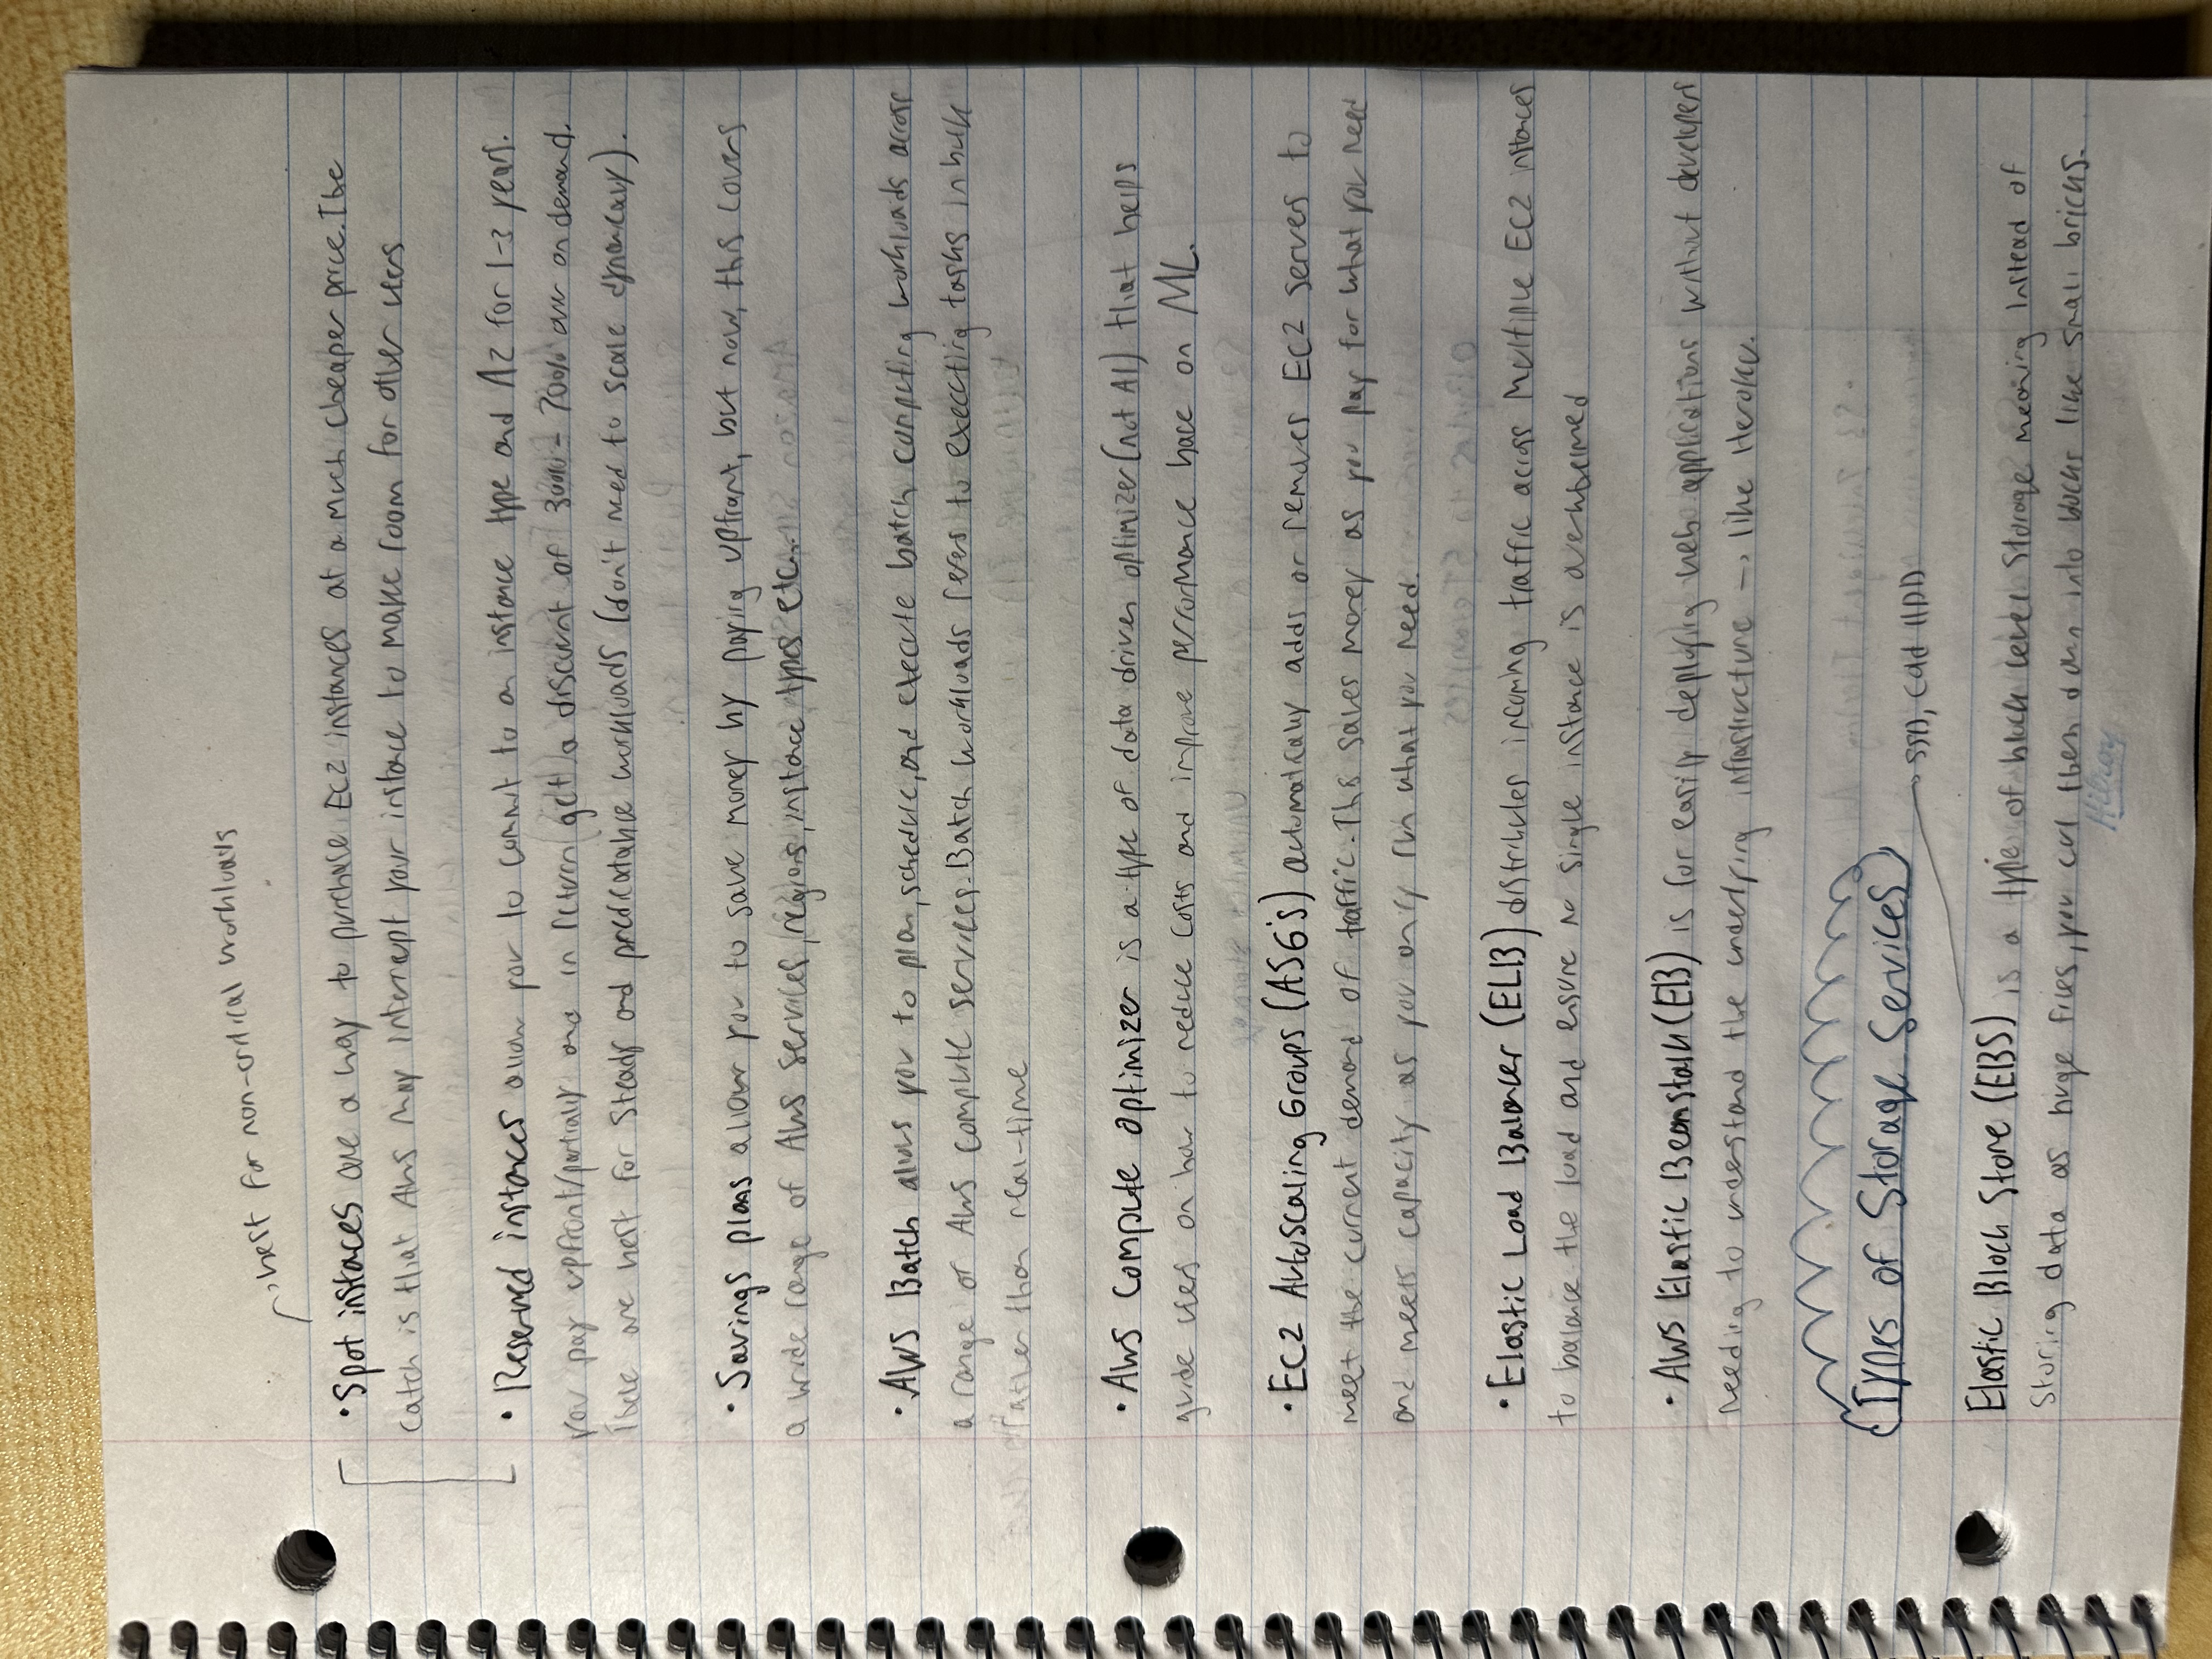 best for non-critical workloads
• Spot instaces are a way to purchase EC2 instances at a much cheaper price. The
catch is that AWS may interrupt your instace to make room for other users
• Reserved instances allow you to commit to an instance type and AZ for 1-3 years.
You pay upfront/partially and in return get a discount of 30% - 70% over on demand.
These are best for steady and predicatable workloads (don't need to scale dynamically).
• Savings plans allow you to save money by paying upfront, but now, this covers
a wide range of AWS services, regions, instace types etc...
• AWS Batch allows you to plan, schedule, and execute batch computing workloads across
a range of AWS compute services. Batch workloads refers to executing tasks in bulk
rather than real-time
• AWS Compute Optimizer is a type of data driven optimizer (not AI) that helps
guide users on how to reduce costs and improve performance base on ML.
• EC2 Autoscaling Groups (ASG's) automatically adds or removes EC2 servers to
meet the current demand of traffic. This saves money as you pay for what you need
and meets capacity as you only run what you need.
• Elastic Load Balancer (ELB) distributes incoming traffic across multiple EC2 instances
to balance the load and ensure no single instance is overwhelmed
• AWS Elastic Beanstalk (EB) is for easily deploying web applications without developers
needing to understand the underlying infrastructure → like Heroku.
Types of Storage Services
SSD, Cold HDD
Elastic Block Store (EBS) is a type of block level storage meaning instead of
storing data as huge files, you cut them down into blocks like small bricks.
Hilroy